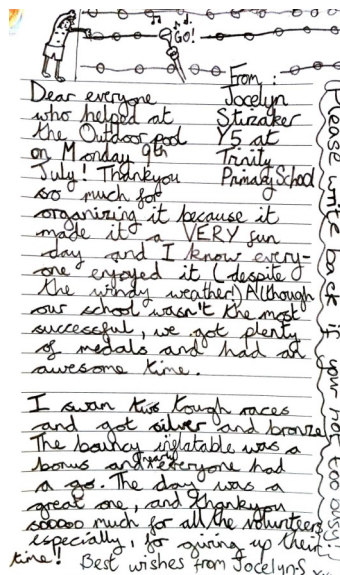 GO!
From:
Jocelyn
Stirzaker
Y5 at
Trinity
Primary School
Dear everyone
who helped at
the Outdoor pool
on Monday 9th
July! Thankyou
so much for
organizing it because it
made it a VERY fun
day and I know every-
one enjoyed it (despite
the windy weather!) Although
our school wasn't the most
successful, we got plenty
of medals and had an
awesome time.
I swam two tough races
and got silver and bronze
The bouncy inflatable was a
bonus and nearly everyone had
a go. The day was a
great one, and thankyou
sooooo much for all the volunteers
especially, for giving up their
time! Best wishes from Jocelyn.S xx
Please write back if your not too busy!!!